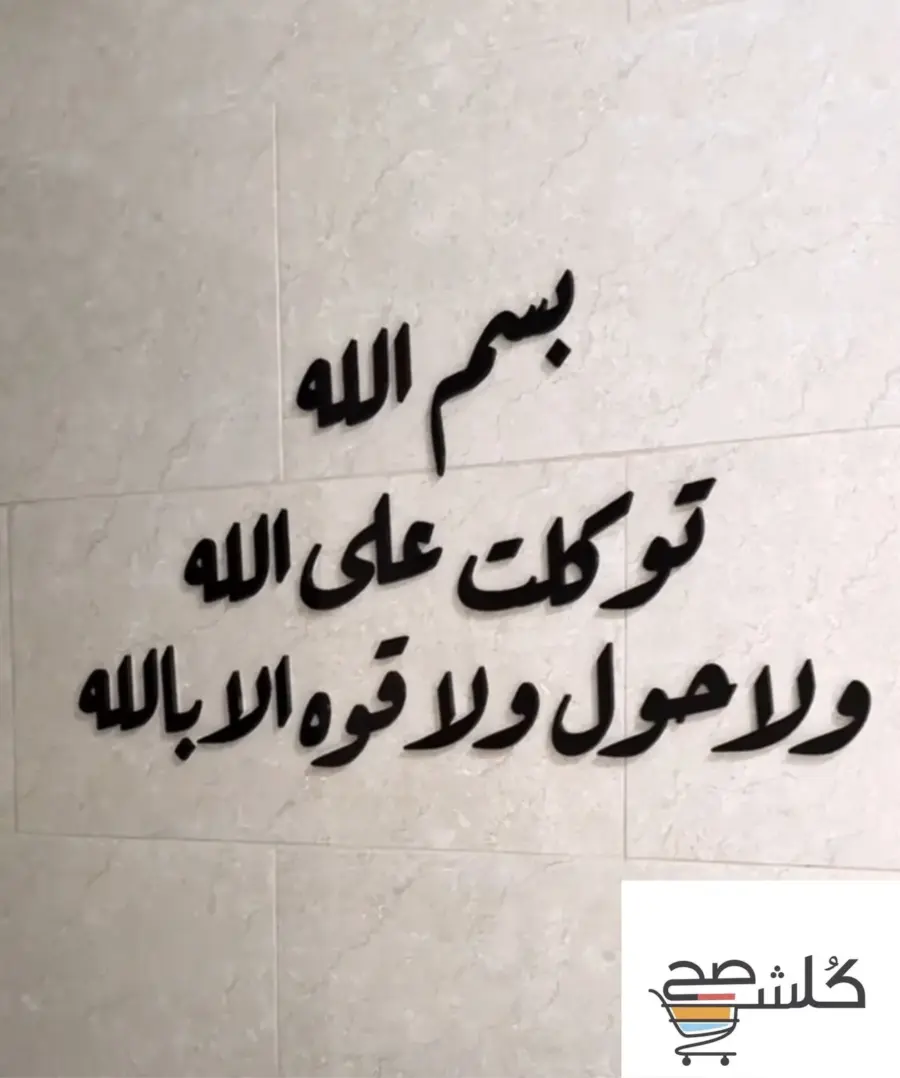 بسم الله
توكلت على الله
ولا حول ولا قوه الا بالله
كُلشي صح